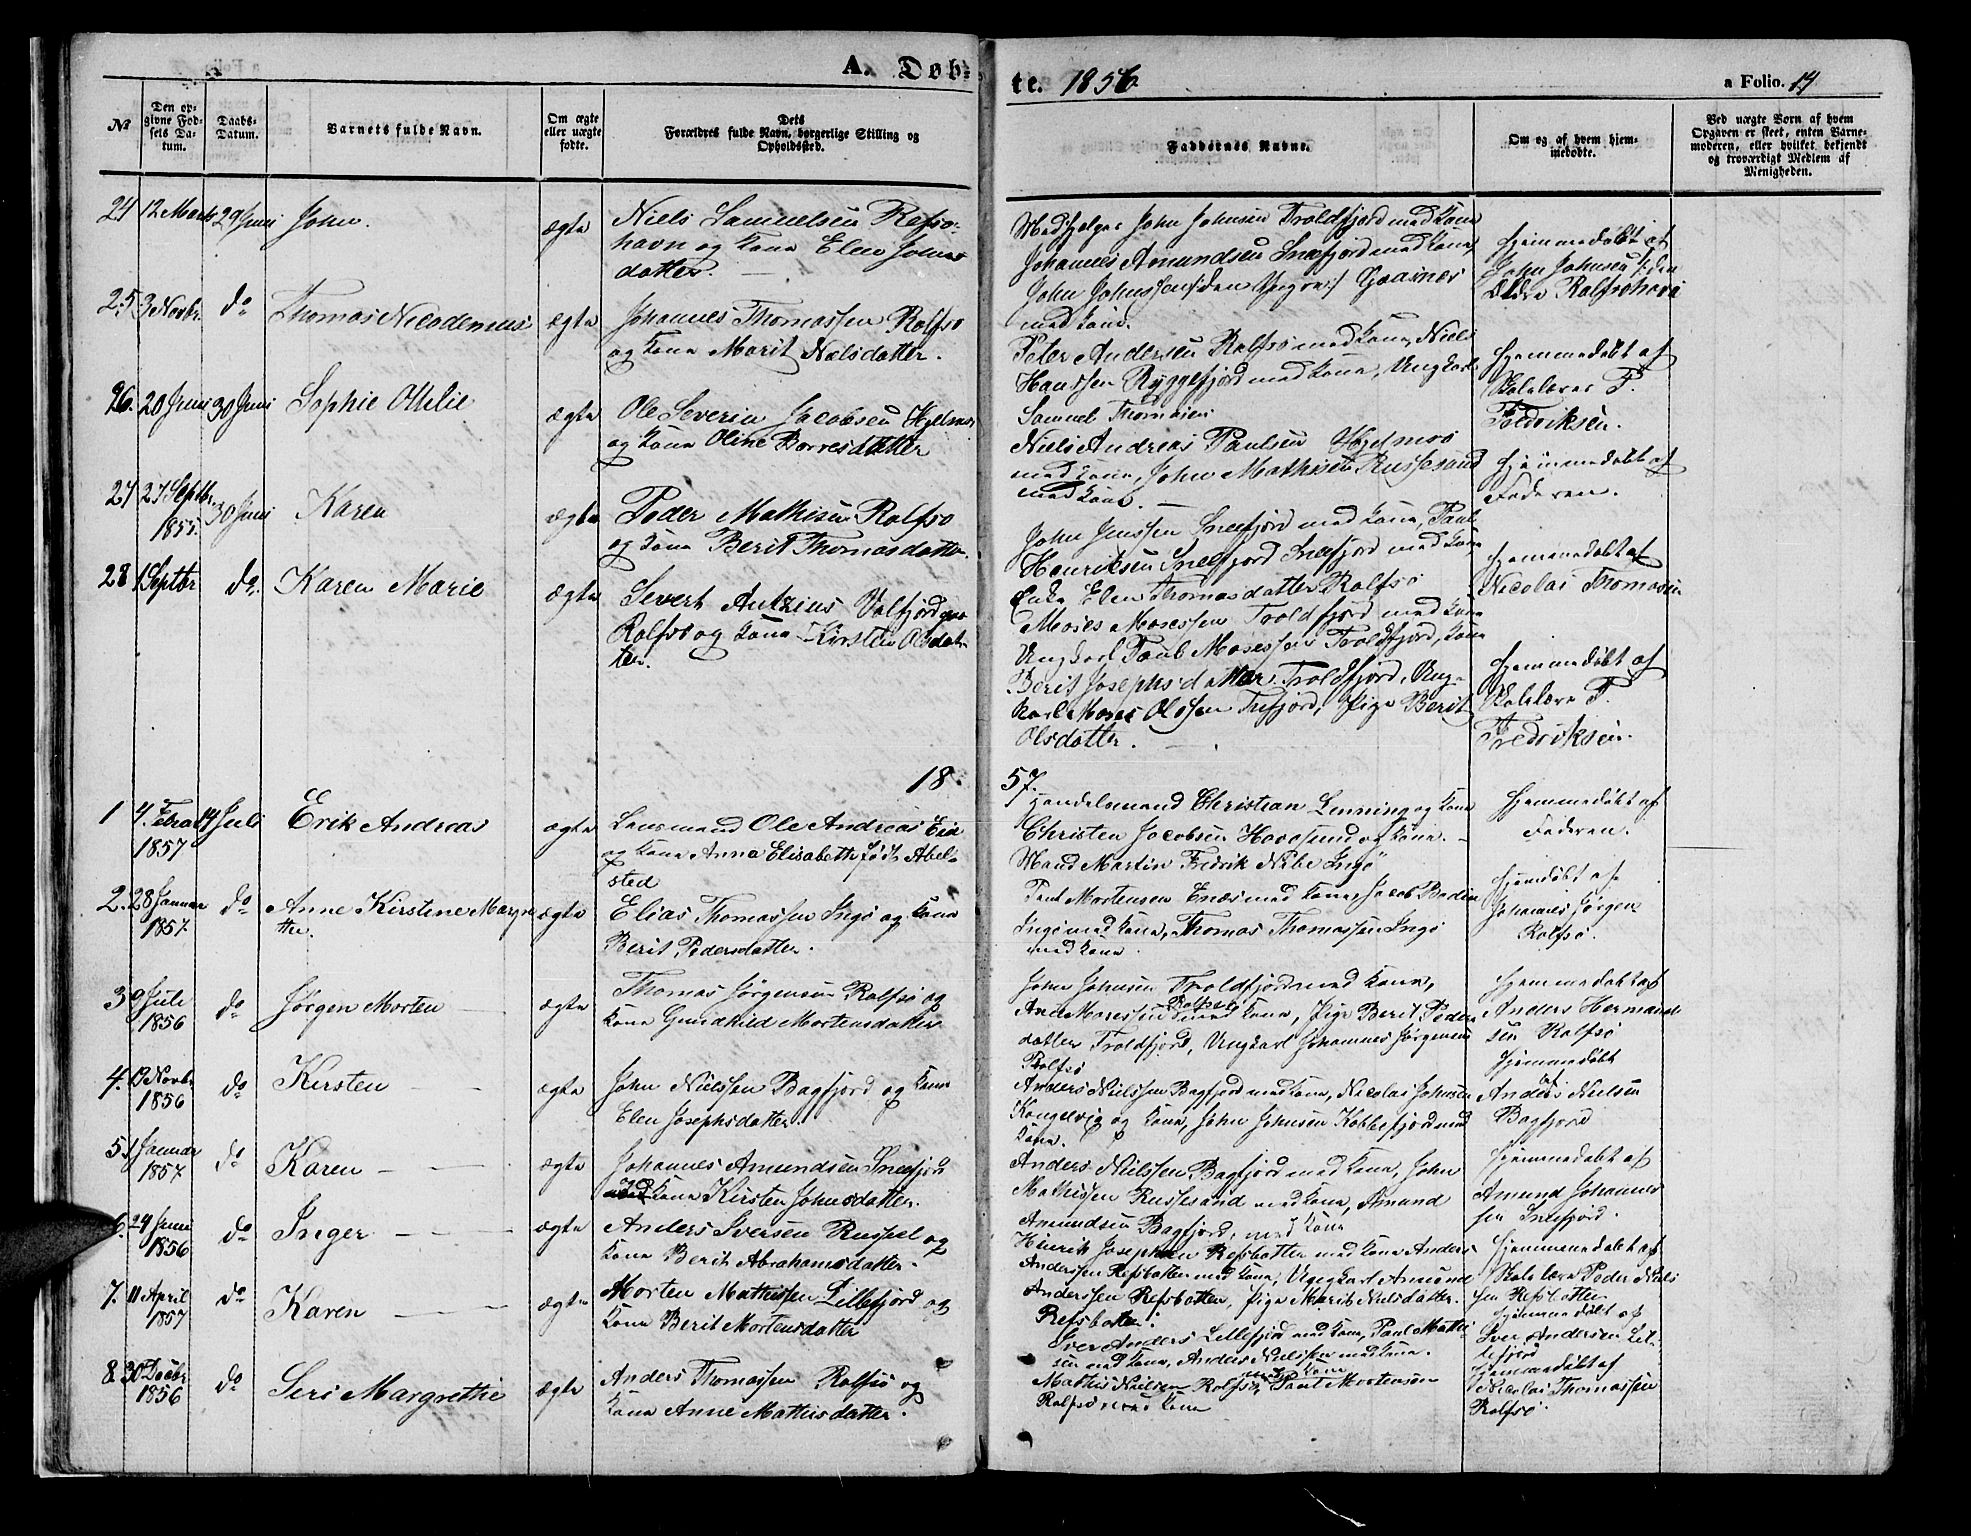 A. Døb-
te. 1856
a Folio. 14
No
Den op-
givne Fød-
sels Da-
tum.
Daabs-
Datum.
Barnets fulde Navn.
Om ægte
eller uægte
fødte.
Dets
Forældres fulde Navn, borgerlige Stilling og
Opholdssted.
Faddernes Navne.
Om og af hvem hjem-
medøbte.
Ved uægte Børn af hvem
Opgaven er skeet, enten Barne-
moderen, eller hvilket bekjendt
og troværdigt Medlem af
Menigheden.
24 12 Marts 29 Juni John. ægte
Niels Samuelsen Refso-
havn og Kone Elen Johns
datter.
Medhjelper John Johnsen Troldfjord med Kone
Johannes Amundsen Snefjord med Kone,
John Johnssen /:den Yngre:/
med Kone.
hjemmedøbt af
John Johnsen /: den
Eldre Rolfsøhavn
25 3 Novbr. do Thomas Nicodemus ægte
Johannes Thomassen Rolfsø
og Kone Marit Nielsdatter.
Peter Andersen Rolfsø med Kone, Niels
Hanssen Ryggefjord med Kone, Ungkarl
Samuel
Hjemmedøbt af
Skolelærer P.
Fredriksen.
26. 20 Juni 30 Juni Sophie Ottilie ægte
Ole Severin Jacobsen Hjelmsø
og Kone Oline Borresdatter
Niels Andreas Paulsen Hjelmsø
med Kone, John Mathisen Russesund
med Kone.
Hjemmedøbt af
Faderen.
27 27 Septbr 1855. 30 Juni Karen ægte
Peder Mathisen Rolfsø
og Kone Berit Thomasdatter.
John Jenssen Snefjord med Kone, Paul
Henriksen Snefjord Snefjord med Kone
Enke Elen Thomasdatter Rolfsø
hjemmedøbt af
Nicolai Thomassen
28 1 Septbr do. Karen Marie ægte
Severt Antzius Valfjord paa
Rolfsø og Kone Kirsten Olsdat-
ter.
Moses Mosessen Troldfjord med Kone
Ungkarl Paul Mosessen Troldfjord, Kone
Berit Josephsdatter Troldfjord, Ung-
karl Moses Olssen Trefjord, Pige Berit
Olsdatter.
Hjemmedøbt af
Skolelærer P.
Fredriksen.
18
57.
1 4. Febrar 1857 14 Juli Erik Andreas ægte
Lensmand Ole Andreas Eie
og Kone Anna Elisabeth født Abel-
sted
Handelsmand Christian Linning og Kone
Christen Jacobsen Havøsund og Kone.
Mand Martin Fredrik Nibe Ingø
Hjemmedøbt af
Faderen.
2. 28 Januar 1857. do Anne Kirstine Margre
the. ægte
Elias Thomassen Ingø og Kone
Berit Pedersdatter.
Paul Mortensen med Kone, Jacob
Ingø med Kone, Thomas Thomassen Ingø
med Kone.
Hjemdøbt af
Johannes Jørgen
Rolfsø.
3 9 Juli 1856 do Jørgen Morten ægte
Thomas Jørgensen Rolfsø og
Kone Gundhild Mortensdatter
John Johnsen Troldfjord med Kone,
Mosessen Rolfsø med Kone, Pige Berit Peders
datter Troldfjord, Ungkarl Johannes Jørgensen
Rolfsø
Hjemmedøbt af
Anders Hermand-
sen Rolfsø
4. 13 Novbr 1856 do Kirsten ægte
John Nielssen Bagfjord og Kone
Elen Josephsdatter.
Anders Nielssen Bagfjord med Kone, Nicolai Johnsen
Kongelvig og Kone, John Johnsen Kobbefjord med
Kone.
Hjemmedøbt
af
Anders Nielsen
Bagfjord
5. 1 Januar 1857 do Karen ægte
Johannes Amundsen Snefjord
og Kone Kirsten Johnsdatter.
Anders Nielssen Bagfjord med Kone, John
Mathissen Russesund med Kone, Amund
Amundsen Bagfjord, med Kone
Hjemmedøbt af
Amund Johannes
sen Snefjord.
6. 24 Juni 1856 do Inger ægte
Anders Iversen Russel og
Kone Berit Abrahamsdatter.
Hinrik Josephsen Refsbotten med Kone Anders
Anderssen Refsbotten med Kone, Ungkarl Amund
Anderssen Refsbotten, Pige Marit Nilsdatter.
Refsbotten.
Hjemmenedøbt af
Skolelærer Peder Niels
sen Refsbotten
7. 11 April 1857 do Karen ægte
Morten Mathissen Lillefjord og
Kone Berit Mortensdatter
Iver Anders Lillefjord med Kone, Paul Mathi-
sen med Kone, Anders Nielssen med Kone.
hjemmedøbt af
Iver Andersen Lil-
lefjord
8 30 Decbr 1856 do Seri Margrethe ægte
Anders Thomassen Rolfsø og
Kone Anne Mathisdatter.
Mathis Nielsen Rolfsø, med Kone Paul Mortensen
Rolfsø med Kone
Hjemmedøbt af
Nicolai Thomassen
Rolfsø.